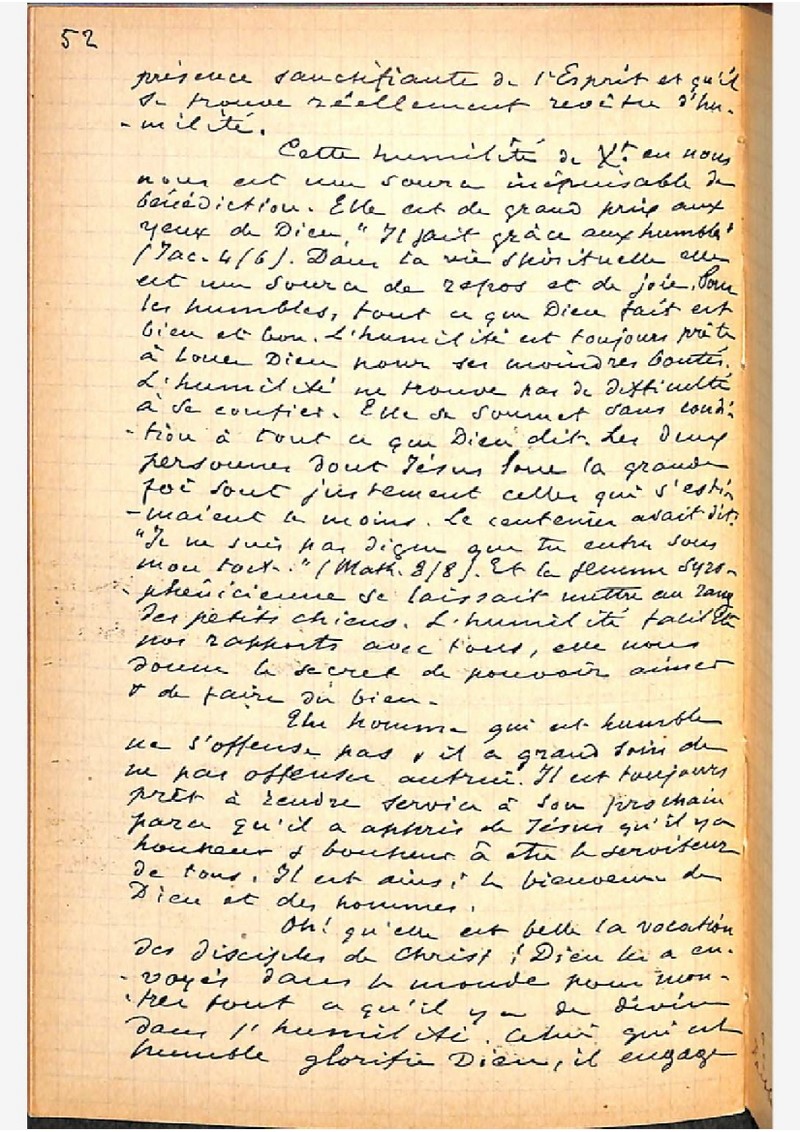 52
présence sanctifiante de l'Esprit et qu'il
se trouve réellement revêtu d'hu-
-milité.
Cette humilité de Xt. en nous
nous est une source inépuisable de
bénédiction. Elle est de grand prix aux
yeux de Dieu, "Il fait grâce aux humbles"
(Jac. 4/6). Dans la vie spirituelle elle
est une source de repos et de joie. Pour
les humbles, tout ce que Dieu fait est
bien et bon. L'humilité est toujours prête
à louer Dieu pour ses moindres bontés.
L'humilité ne trouve pas de difficulté
à se confier. Elle se soumet sans condi-
-tion à tout ce que Dieu dit. Les deux
personnes dont Jésus loue la grande
foi sont justement celles qui s'esti-
-maient le moins. Le centenier avait dit:
"Je ne suis pas digne que tu entres sous
mon toit." (Math. 8/8). Et la femme Syro-
-phénicienne se laissait mettre au rang
des petits chiens. L'humilité facilite
nos rapports avec tous, elle nous
donne le secret de pouvoir aimer
& de faire du bien.
Un homme qui est humble
ne s'offense pas & il a grand soin de
ne pas offenser autrui. Il est toujours
prêt à rendre service à son prochain
parce qu'il a appris de Jésus qu'il y a
honneur & bonheur à être le serviteur
de tous. Il est ainsi le bienvenu de
Dieu et des hommes.
Oh! qu'elle est belle la vocation
des disciples de Christ! Dieu les a en-
-voyés dans le monde pour mon-
-trer tout ce qu'il y a de divin
dans l'humilité. Celui qui est
humble glorifie Dieu, il engage